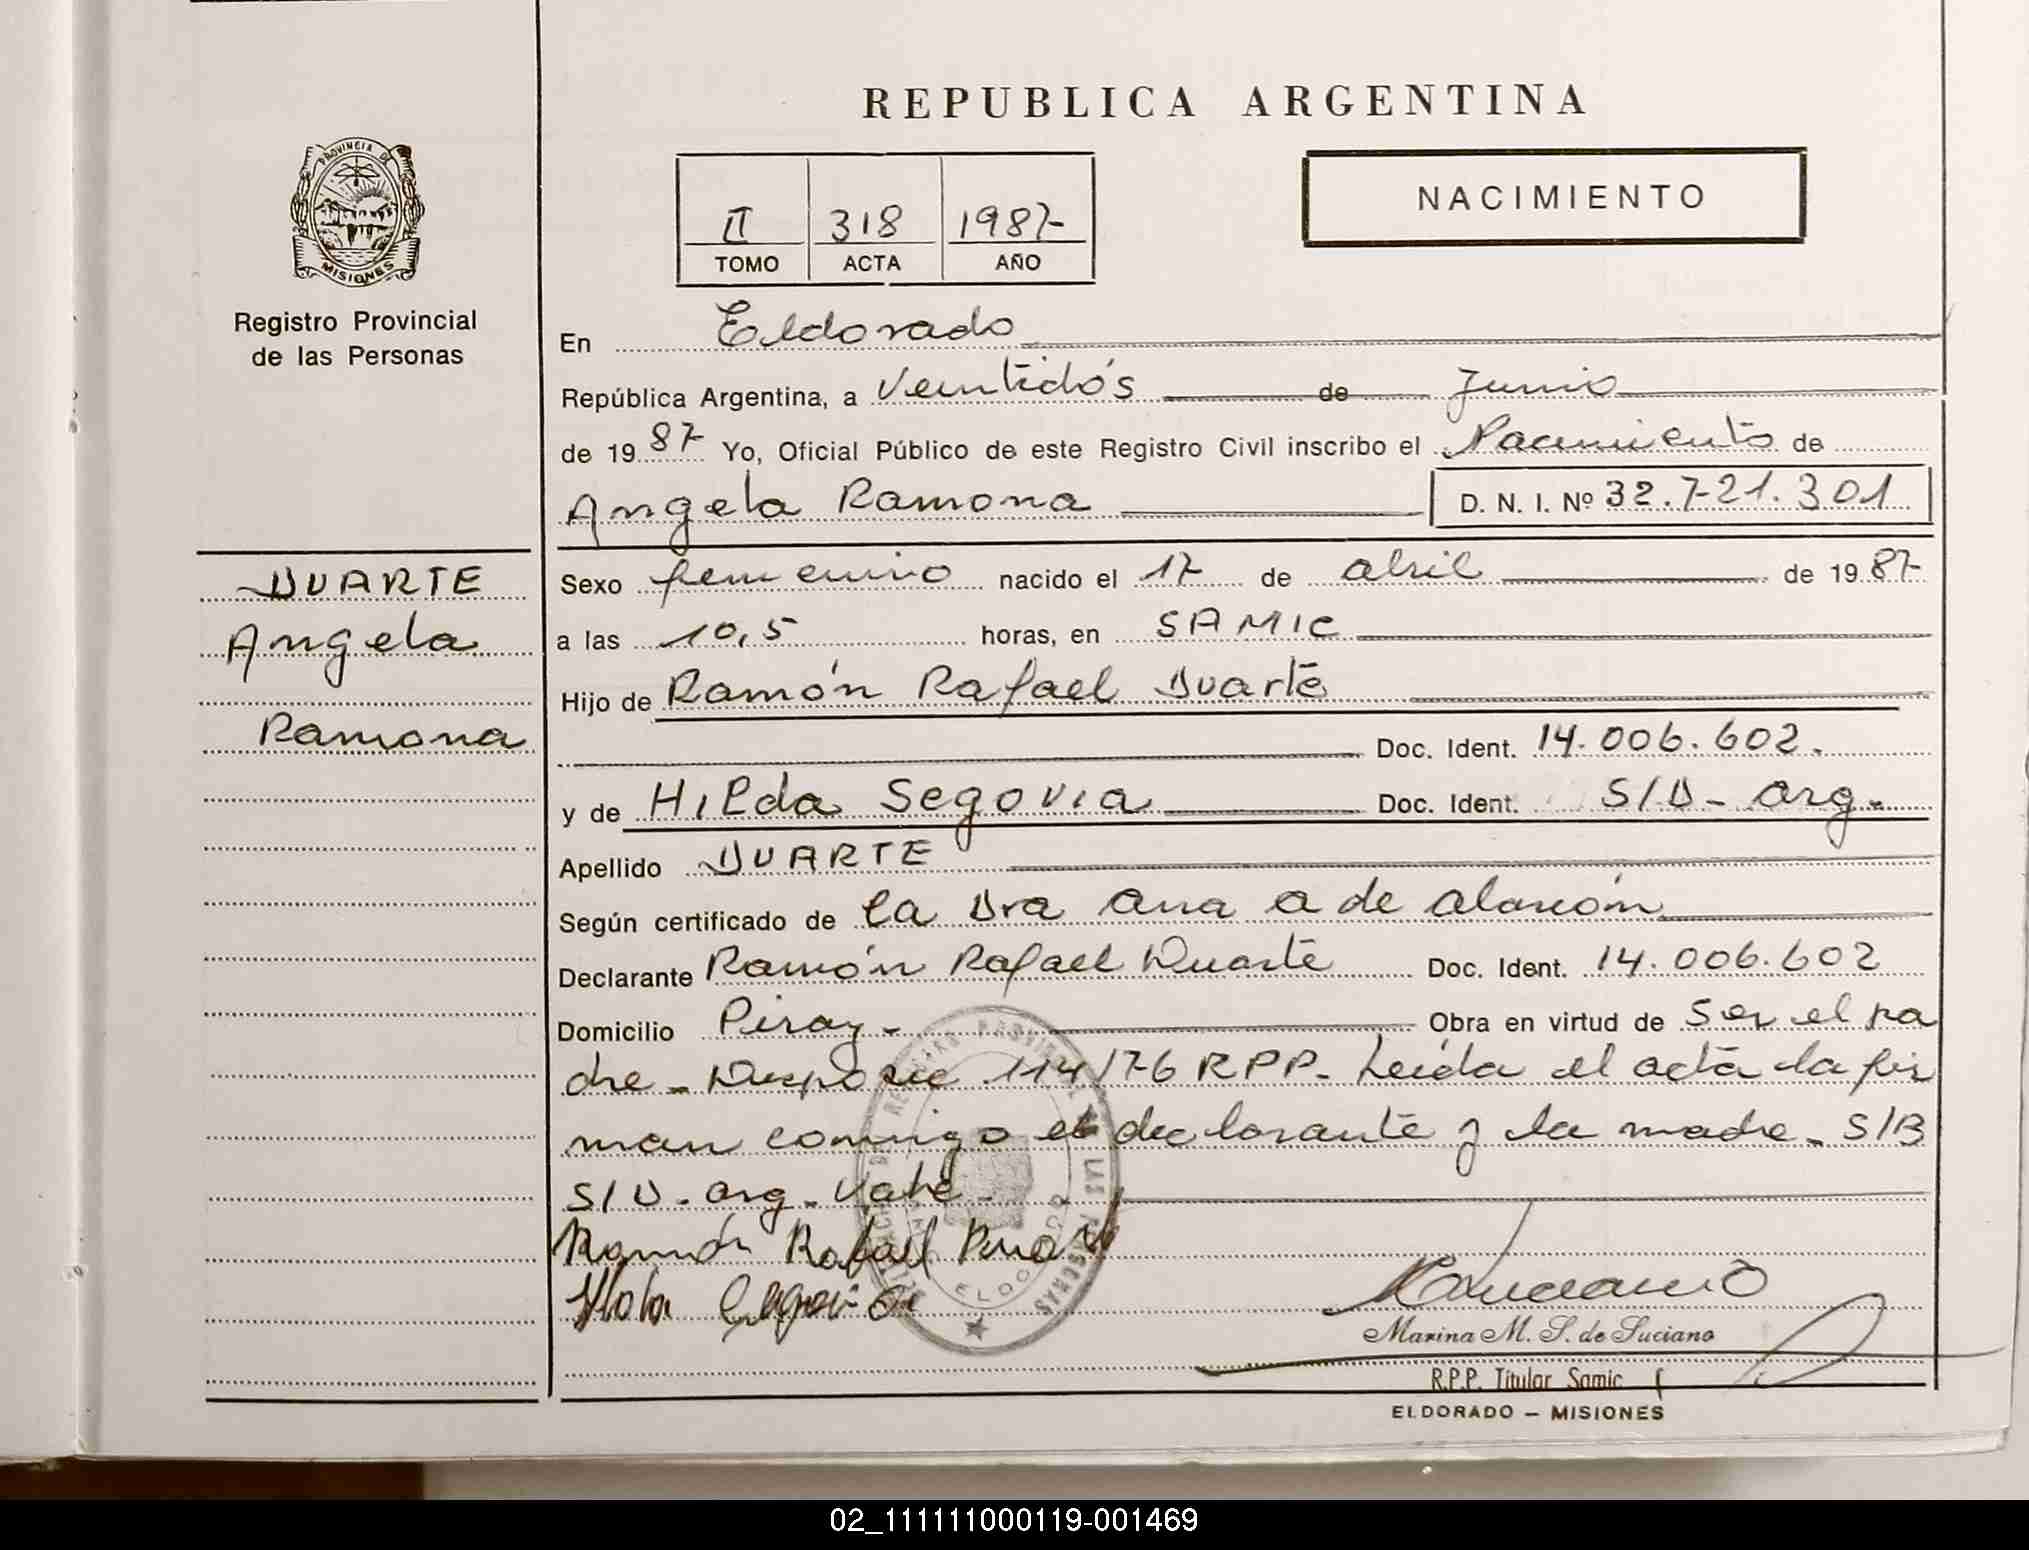 REPUBLICA ARGENTINA
PROVINCIA DE
MISIONES
Registro Provincial
de las Personas
II 318 1987-
TOMO ACTA AÑO
NACIMIENTO
En Eldorado
República Argentina, a Veintidós de Junio
de 19 87- Yo, Oficial Público de este Registro Civil inscribo el Nacimiento de
Angela Ramona D. N. I. Nº 32.721.301
DUARTE
Angela
Ramona
Sexo femenino nacido el 17 de abril de 19 87-
a las 10,5 horas, en SAMIC
Hijo de Ramón Rafael Duarte
Doc. Ident. 14.006.602.
y de Hilda Segovia Doc. Ident. S/D- arg.
Apellido DUARTE
Según certificado de la Dra Ana A de Alarcón
Declarante Ramón Rafael Duarte Doc. Ident. 14.006.602
Domicilio Piray- Obra en virtud de Ser el pa
dre- 114/76 RPP- Leída el acta la fir
man conmigo el declarante y la madre- S/B
S/D- arg- Vale
Ramón Rafael Duarte
Hilda Segovia
Marina M. S. de Luciano
R.P.P. Titular Samic
ELDORADO – MISIONES
02_111111000119-001469